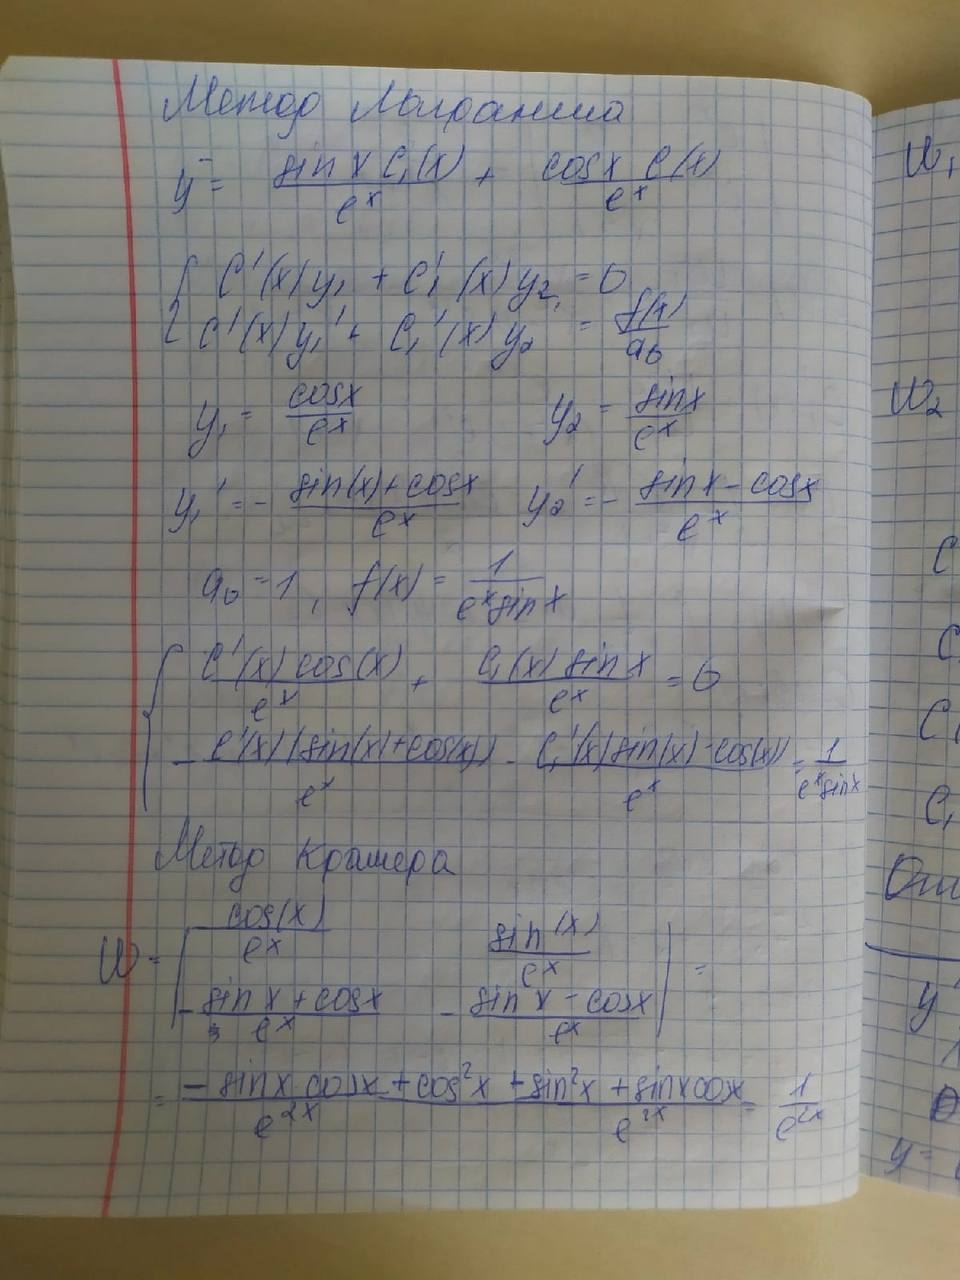 Метод Лагранжа
y = sin x C₁(x) / eˣ + cosx C(x) / eˣ
{ C'(x) y₁ + C₁'(x) y₂ = 0
C'(x) y₁' + C₁'(x) y₂ = f(x) / a₀
y₁ = cosx / eˣ y₂ = sinx / eˣ
y₁' = - sin(x) + cosx / eˣ y₂' = - sin x - cosx / eˣ
a₀ = 1, f(x) = 1 / eˣ sin x
{ C'(x) cos(x) / eˣ + C₁(x) sin x / eˣ = 0
- C'(x) (sin(x) + cos(x)) / eˣ - C₁'(x) sin(x) - cos(x)) / eˣ = 1 / eˣ sin x
Метод Крамера
W = | cos(x) / eˣ sin(x) / eˣ | =
- sin x + cosx / eˣ - sin x - cosx / eˣ
= - sin x cosx + cos²x + sin²x + sin x cosx / e²ˣ e²ˣ = 1 / e²ˣ
W₁
W₂
C
C₁
y'
y =